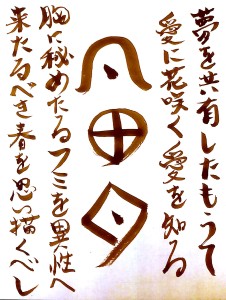 夢を共有したもうて
愛に花咲く愛を知る
胸に秘めたるフミを異性へ
来たるべき春を思い描くべし